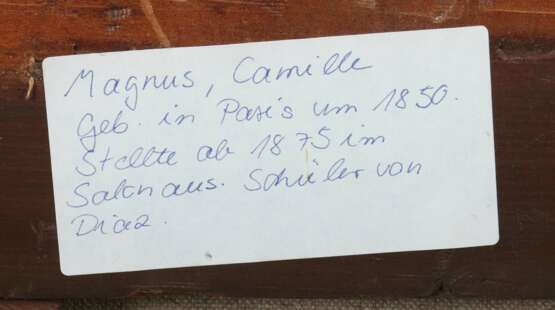 Magnus, Camille
Geb. in Paris um 1850.
Stellte ab 1875 im
Salon aus. Schüler von
Diaz.